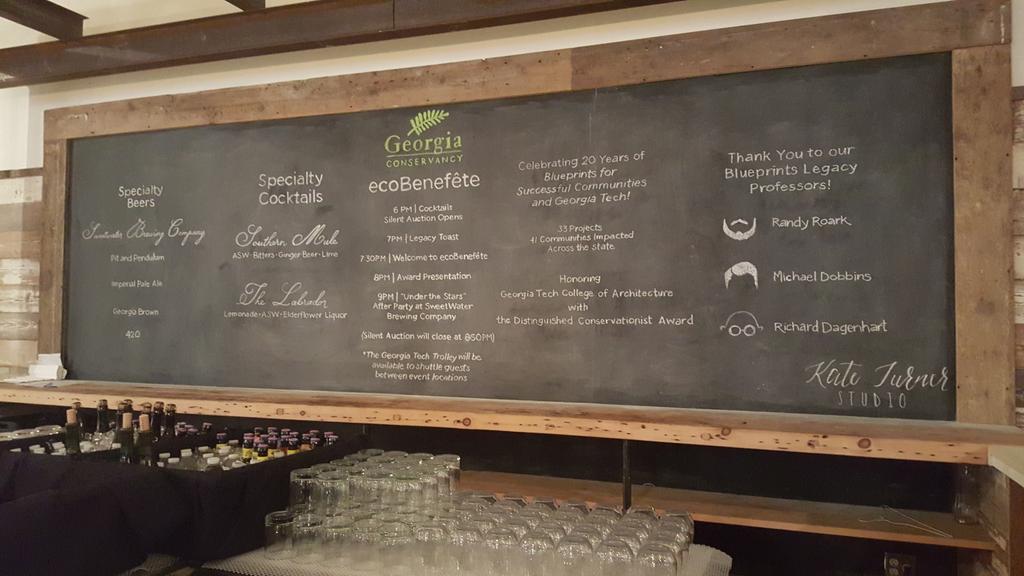 Specialty
Beers
Sweetwater Brewing Company
Pit and Pendulum
Imperial Pale Ale
Georgia Brown
420
Specialty
Cocktails
Southern Mule
ASW • Bitters • Ginger Beer • Lime
The Labrador
Lemonade • ASW • Elderflower Liquor
Georgia
CONSERVANCY
ecoBenefête
6 PM | Cocktails
Silent Auction Opens
7PM | Legacy Toast
7:30PM | Welcome to ecoBenefête
8PM | Award Presentation
9PM | "Under the Stars"
After Party at SweetWater
Brewing Company
(Silent Auction will close at 8:50PM)
*The Georgia Tech Trolley will be
available to shuttle guests
between event locations
Celebrating 20 Years of
Blueprints for
Successful Communities
and Georgia Tech!
33 Projects
41 Communities Impacted
Across the State
Honoring
Georgia Tech College of Architecture
with
the Distinguished Conservationist Award
Thank You to our
Blueprints Legacy
Professors!
Randy Roark
Michael Dobbins
Richard Dagenhart
Kate Turner
STUDIO